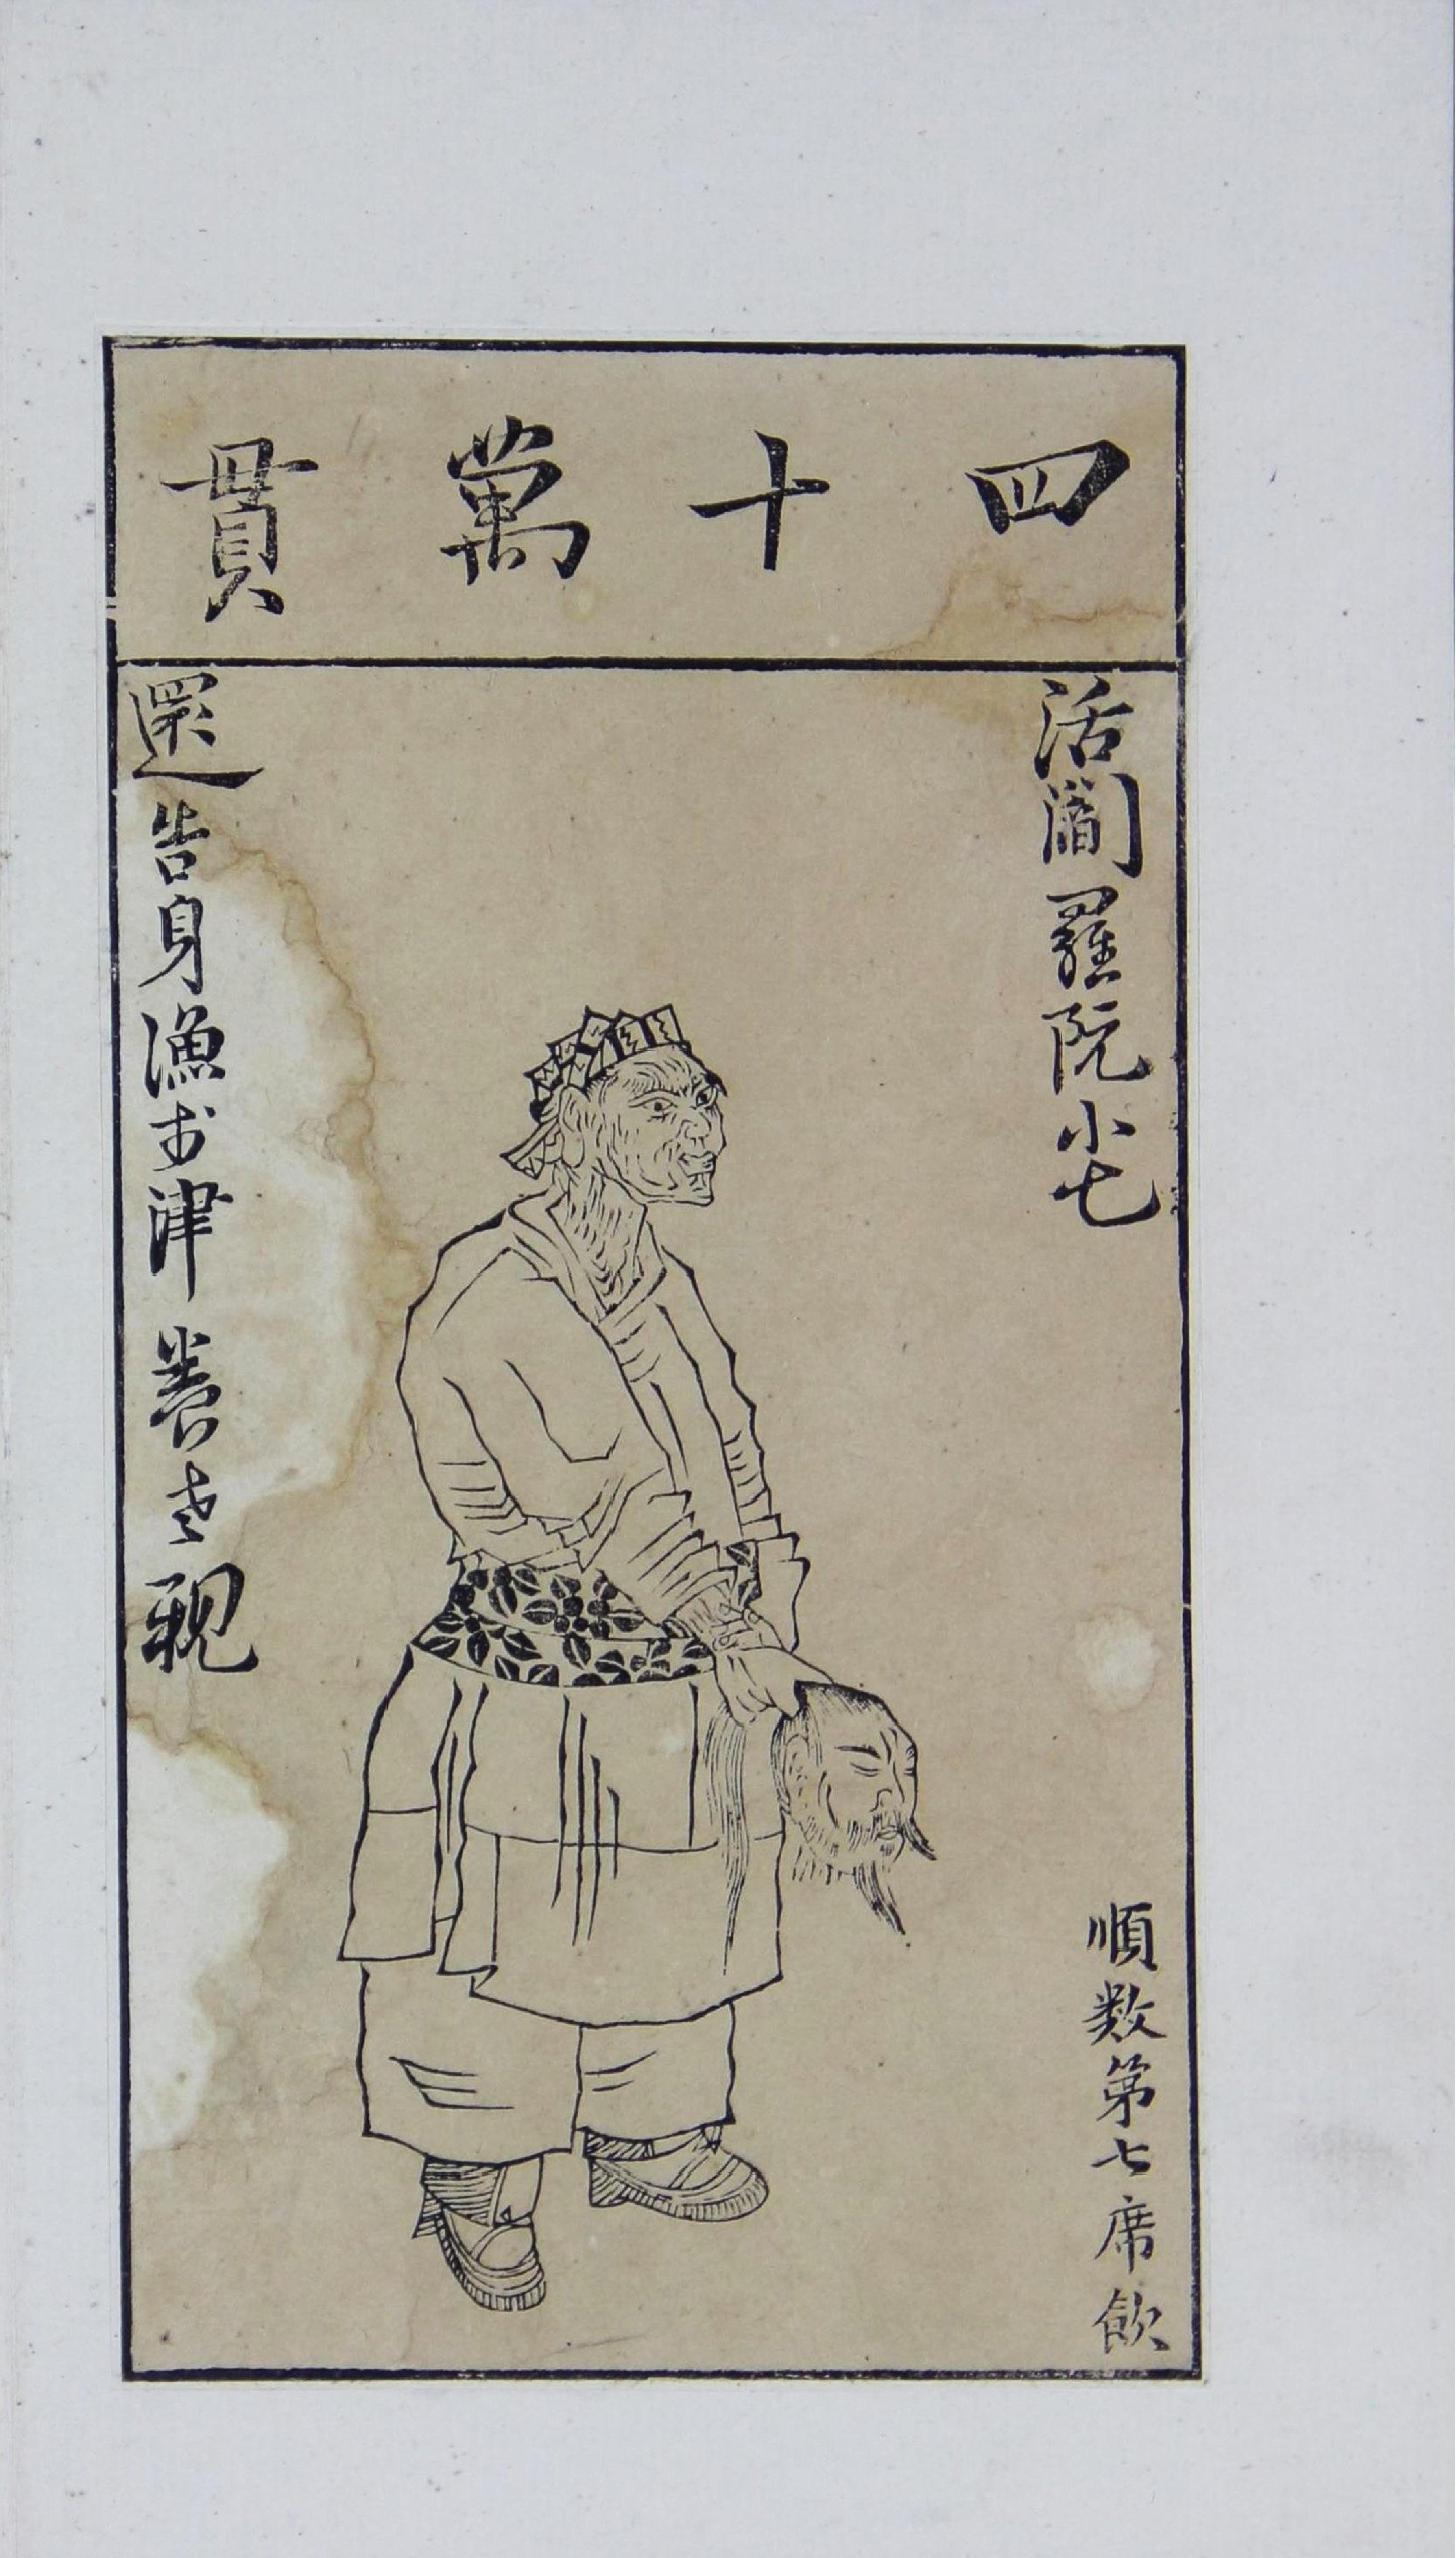 四十萬貫
活閻羅阮小七
順数第七席飲
還告身漁於津養老親